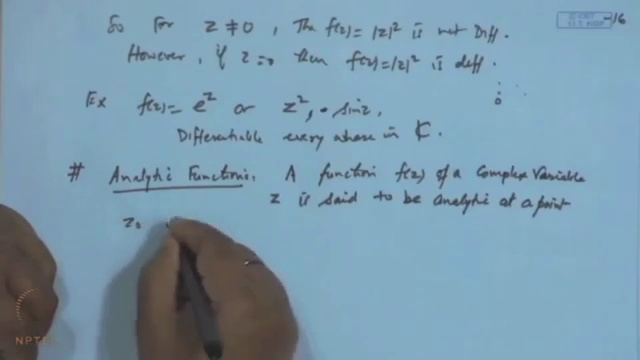 So for z ≠ 0, the f(z) = |z|² is not Diff.
However, if z = 0 then f(z) = |z|² is diff.
0
Ex f(z) = e^z or z², sin z,
Differentiable every where in ℂ.
# Analytic Function. A function f(z) of a Complex Variable
z is said to be analytic at a point
z₀
NPTEL